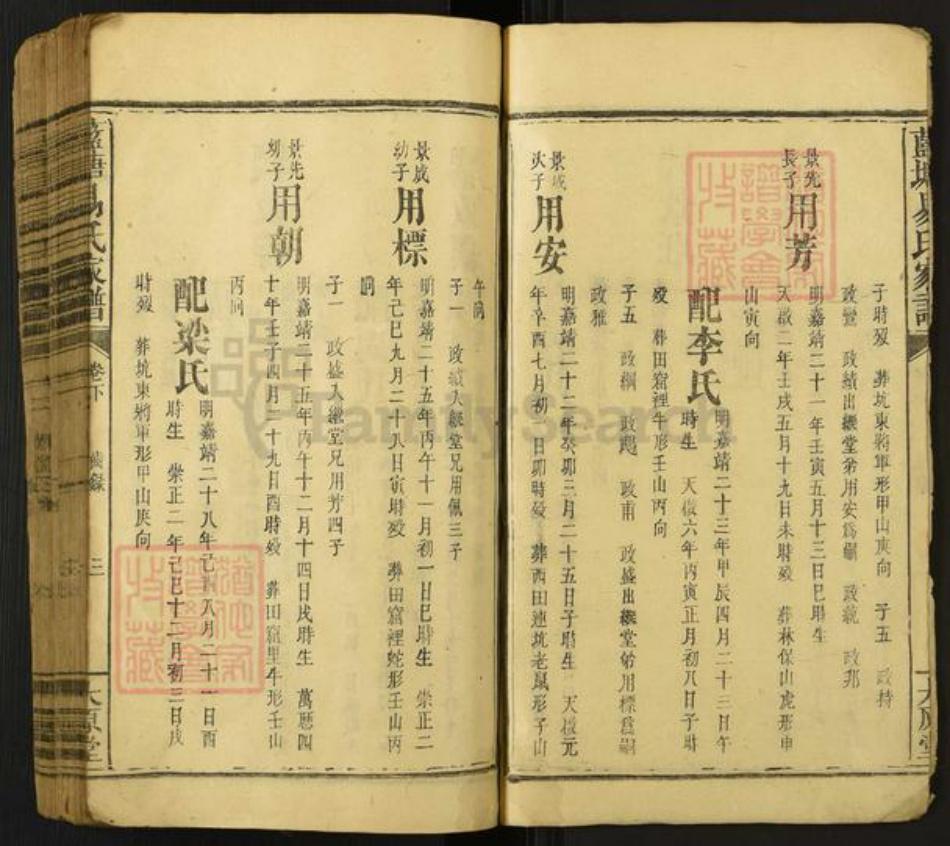 子時歿 葬坑東將軍形甲山庚向 子五 政持
政豐 政績出繼堂弟用安爲嗣 政統 政邦
景先長子 用芳
明嘉靖二十一年壬寅五月十三日巳時生
天啟二年壬戌五月十九日未時歿 葬林保山虎形申
山寅向
配李氏
明嘉靖二十三年甲辰四月二十三日午
時生 天啟六年丙寅正月初八日子時
歿 葬田窩裡牛形壬山丙向
子五 政綱 政 政甫 政盛出繼堂弟用標爲嗣
政雅
景成次子 用安
明嘉靖二十二年癸卯三月二十五日子時生 天啟元
年辛酉七月初一日卯時歿 葬西田連坑老鼠形子山
午向
子一 政績入繼堂兄用佩三子
景成幼子 用標
明嘉靖二十五年丙午十一月初一日巳時生 崇正二
年己巳九月二十八日寅時歿 葬田窩裡蛇形壬山丙
向
子一 政盛入繼堂兄用芳四子
景先幼子 用朝
明嘉靖二十五年丙午十二月十四日戌時生 萬曆四
十年壬子四月二十九日酉時歿 葬田窩里牛形壬山
丙向
配梁氏
明嘉靖二十八年己酉八月二十一日酉
時生 崇正二年己巳十二月初三日戌
時歿 葬坑東將軍形甲山庚向
藍塘易氏家譜
卷下
三
太原堂
譜學會收藏
FamilySearch